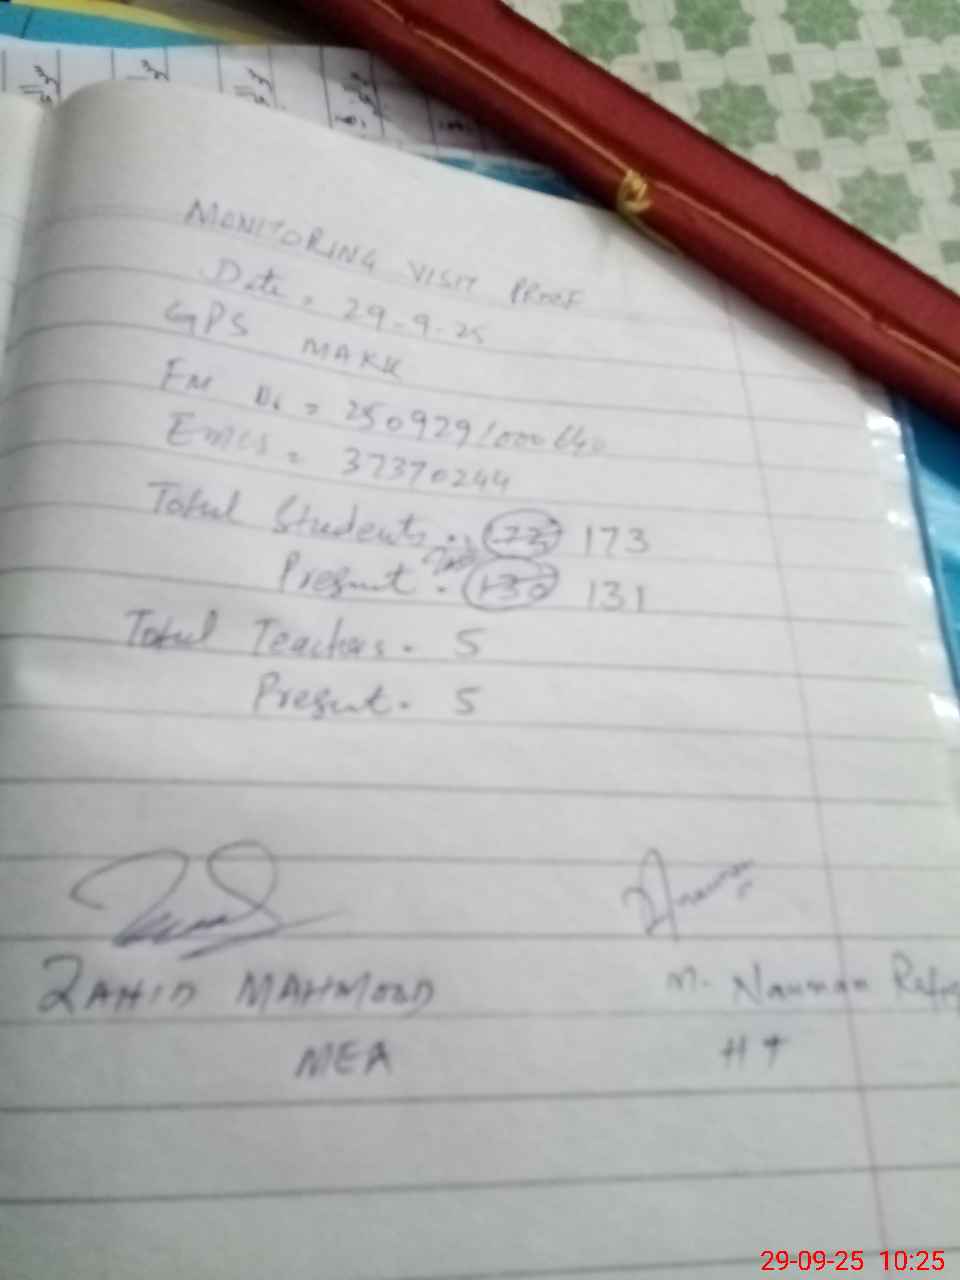 MONITORING VISIT PROOF
Date = 29-9-25
GPS MAKK
EMIS = 37370244
Total Students. 173
Present. 131
Total Teachers. 5
Present. 5
ZAHID MAHMOOD
M. Nauman
MEA
HT
29-09-25 10:25